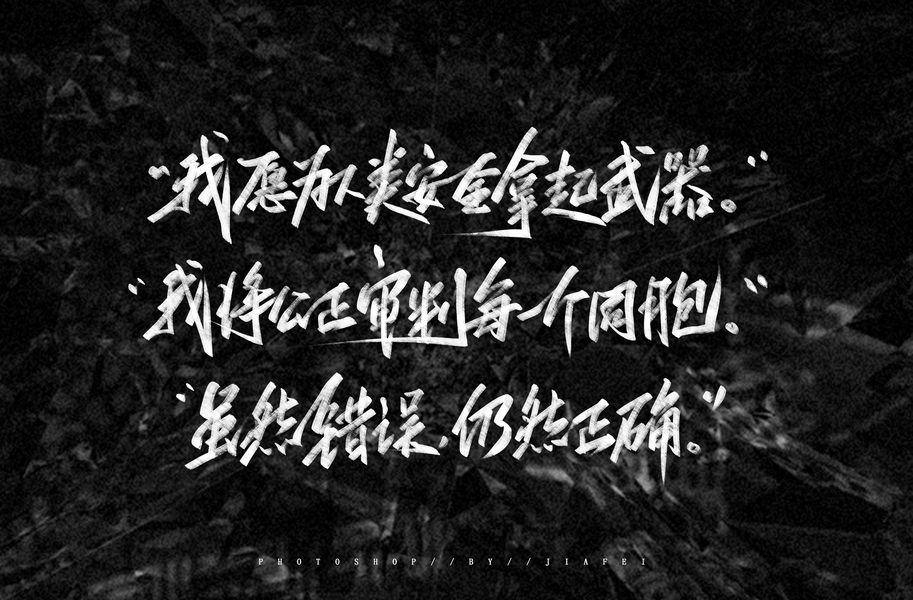 “我愿为人类安全拿起武器。”
“我将公正审判每一个同胞。”
“虽然错误，仍然正确。”
PHOTOSHOP//BY//JIAFEI